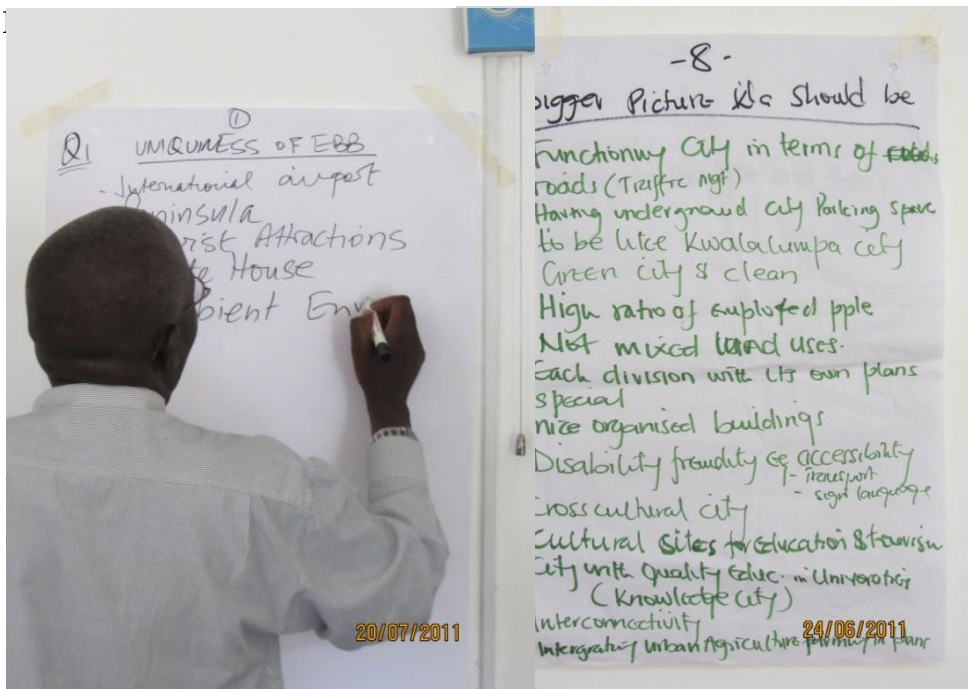 ①
Q1 UNIQUINESS OF EBB
- International airport
ninsula
rist Attractions
te House
bient Env
20/07/2011
-8-
bigger Picture K'la should be
Functioning City in terms of
roads (Traffic Mgt)
Having underground city Parking space
to be like Kwalalumpa city
Green city & clean
High ratio of employed pple
Not mixed land uses.
Each division with its own plans
special
nize organised buildings
Disability frendity eg accessibility
- Transport
- sign language
Cross cultural city
Cultural sites for Education & tourism
City with Quality Educ. in Universities
(Knowledge city)
Interconnectivity
24/06/2011
Intergrating Urban Agriculture farming in plans